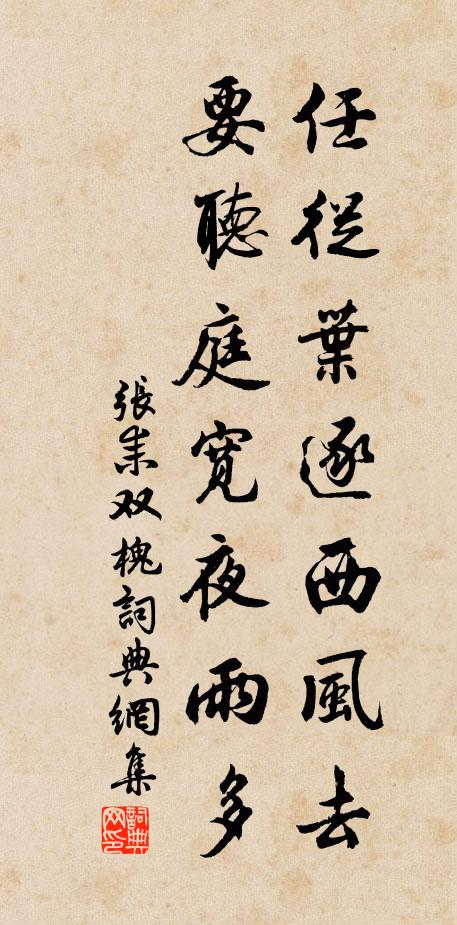 任從葉逐西風去
要聽庭寬夜雨多
張耒双槐詞典網集
詞典网印